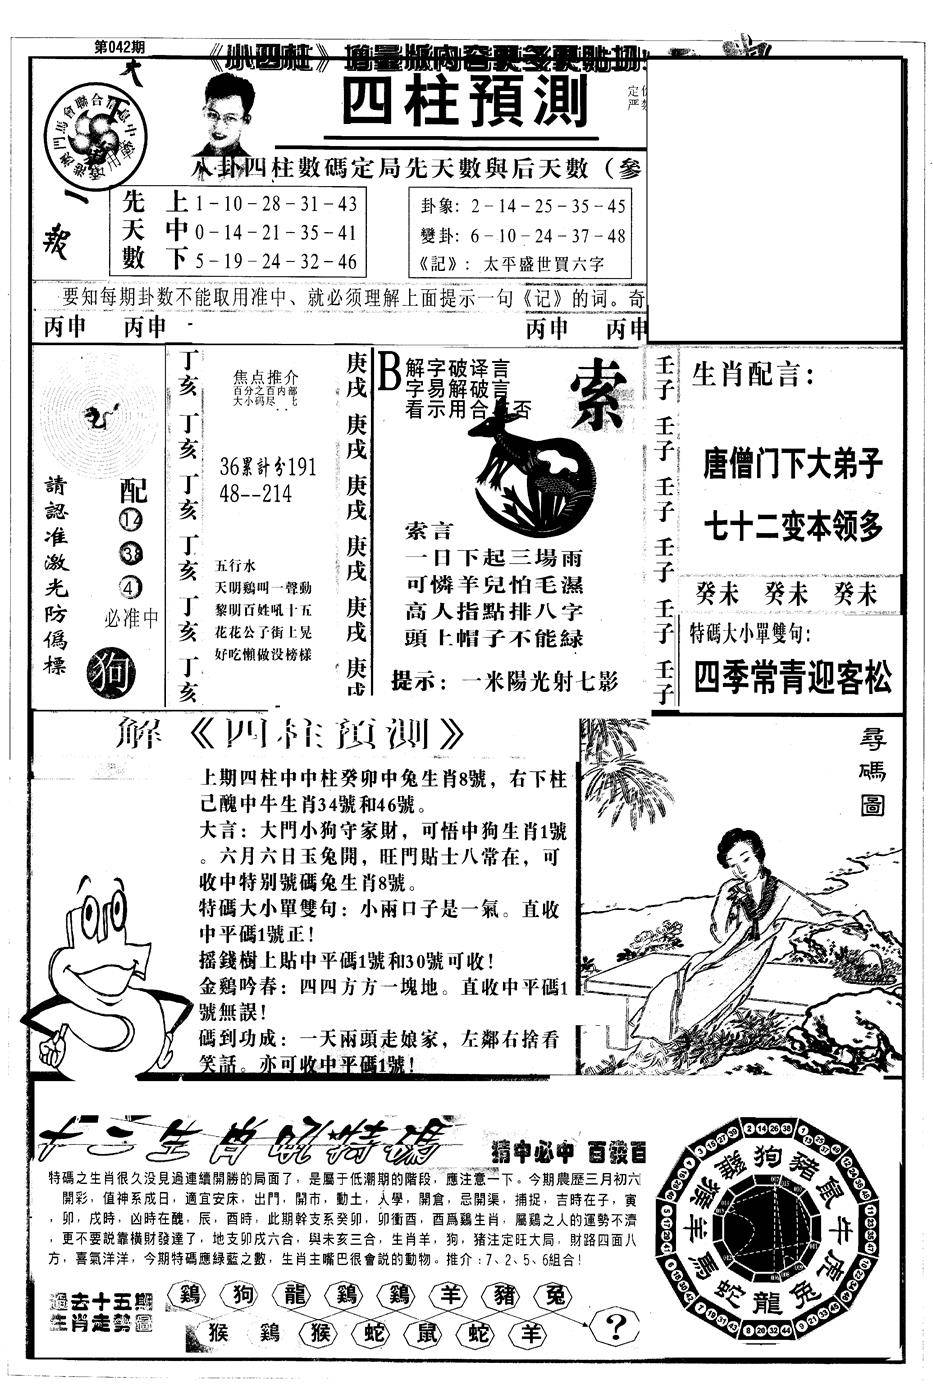 第042期
《小四柱》增量版內容更多更貼切
四柱預測
大
一
報
八卦四柱數碼定局先天數與后天數（參
先 上 1-10-28-31-43
天 中 0-14-21-35-41
數 下 5-19-24-32-46
卦象: 2-14-25-35-45
變卦: 6-10-24-37-48
《記》: 太平盛世買六字
要知每期卦数不能取用准中、就必须理解上面提示一句《记》的词。奇
丙申 丙申
丙申 丙申
請認准激光防僞標
配
14
38
4
必准中
狗
丁亥 丁亥 丁亥 丁亥 丁亥 丁亥
焦点推介
百分之百内部
大小码尽
36累計分191
48--214
五行水
天明鷄叫一聲動
黎明百姓吼十五
花花公子街上晃
好吃懶做没榜樣
庚戌 庚戌 庚戌 庚戌 庚戌 庚戌
B 解字破译言
字易解破言
看示用合 否
索
索言
一日下起三場雨
可憐羊兒怕毛濕
高人指點排八字
頭上帽子不能緑
提示: 一米陽光射七影
壬子 壬子 壬子 壬子 壬子 壬子
生肖配言:
唐僧门下大弟子
七十二变本领多
癸未 癸未 癸未
特碼大小單雙句:
四季常青迎客松
解《四柱預測》
上期四柱中中柱癸卯中兔生肖8號，右下柱
己醜中牛生肖34號和46號。
大言: 大門小狗守家財，可悟中狗生肖1號
。六月六日玉兔開，旺門貼士八常在，可
收中特別號碼兔生肖8號。
特碼大小單雙句: 小兩口子是一氣。直收
中平碼1號正!
摇錢樹上貼中平碼1號和30號可收!
金鷄吟春: 四四方方一塊地。直收中平碼1
號無誤!
碼到功成: 一天兩頭走娘家，左鄰右捨看
笑話。亦可收中平碼1號!
尋碼圖
十二生肖配特碼
猜中必中 百發百
特碼之生肖很久没見過連續開勝的局面了，是屬于低潮期的階段，應注意一下。今期農歷三月初六
開彩，值神系成日，適宜安床，出門，開市，動土，人學，開倉，忌開渠，捕捉，吉時在子，寅
，卯，戌時，凶時在醜，辰，酉時，此期幹支系癸卯，卯衝酉，酉爲鷄生肖，屬鷄之人的運勢不濟
，更不要説靠横財發達了，地支卯戌六合，與未亥三合，生肖羊，狗，猪注定旺大局，財路四面八
方，喜氣洋洋，今期特碼應緑藍之數，生肖主嘴巴很會説的動物。推介:7、2、5、6組合!
過去十五期
生肖走勢圖
鷄 狗 龍 鷄 鷄 羊 豬 兔
猴 鷄 猴 蛇 鼠 蛇 羊 ?
狗 豬 鼠 牛 虎 兔 龍 蛇 馬 羊 猴 鷄